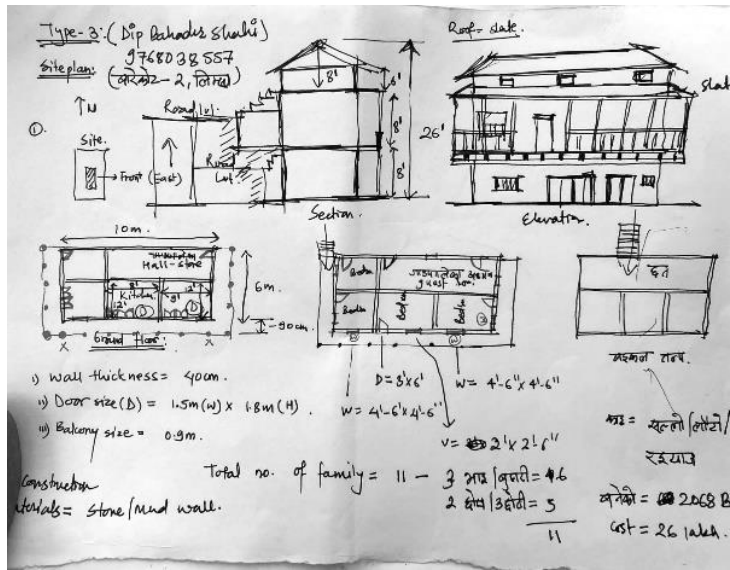 Type-3: (Dip Bahadur Shahi)
9768038557
Site plan:
N
①.
Site.
Front (East)
Road lvl.
Road
Lvl.
8'
6'
8'
8'
26'
Section.
Roof = slate.
Slate
Elevation.
10m.
Hall-store
Kitchen
8'
9'
12'
12'
D
D
6m.
90cm.
X
X
Ground floor.
Bed rm
Bed rm
Bed rm
Bed rm
guest
③
D = 3'x6'
W = 4'-6"x4'-6"
W = 4'-6"x4'-6"
V = 2'x2'-6"
छत
i) Wall thickness = 40cm.
ii) Door size (D) = 1.5m(W) x 1.8m(H).
iii) Balcony size = 0.9m.
construction
terials = Stone/Mud wall.
Total no. of family = 11 - 3
= 6
2 = 5
11
= 2068 B
Cost = 26 lakh.